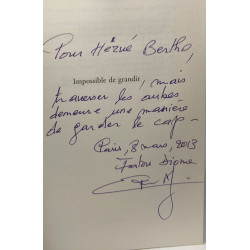 Pour Hervé Berthe,
Impossible de grandir,
mais,
traverser les aubes
demeure une manière
de garder le cap.
Paris, 8 mars, 2013